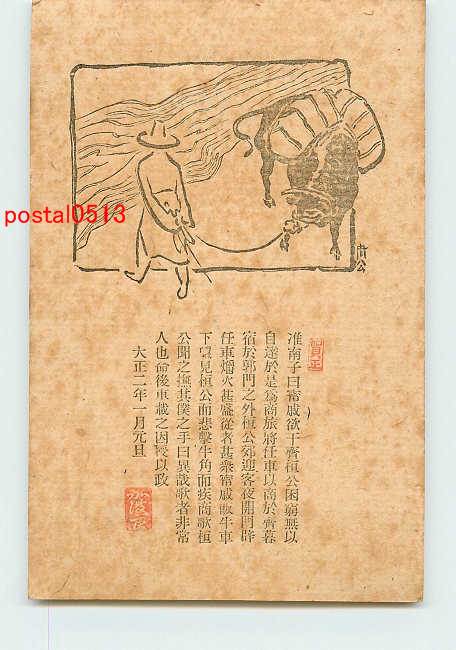 postal0513
肯公
賀正
淮南子曰甯戚欲干齊桓公困窮無以
自達於是爲商旅將任車以商於齊暮
宿於郭門之外桓公郊迎客夜開門辟
任車爝火甚盛從者甚衆甯戚飯牛車
下望見桓公而悲擊牛角而疾商歌桓
公聞之撫其僕之手曰異哉歌者非常
人也命後車載之因授以政
大正二年一月元旦